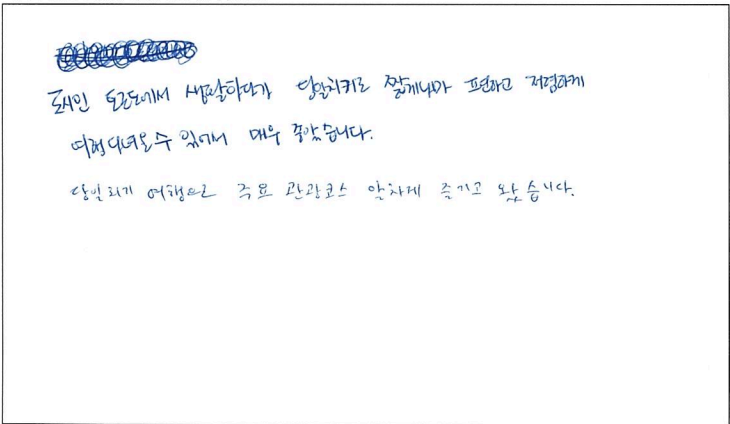 도시인 토론토에서 생활하다가 당일치기로 짧게나마 편하고 저렴하게
여행 다녀올 수 있어서 매우 좋았습니다.
당일치기 여행으로 주요 관광코스 알차게 즐기고 왔습니다.